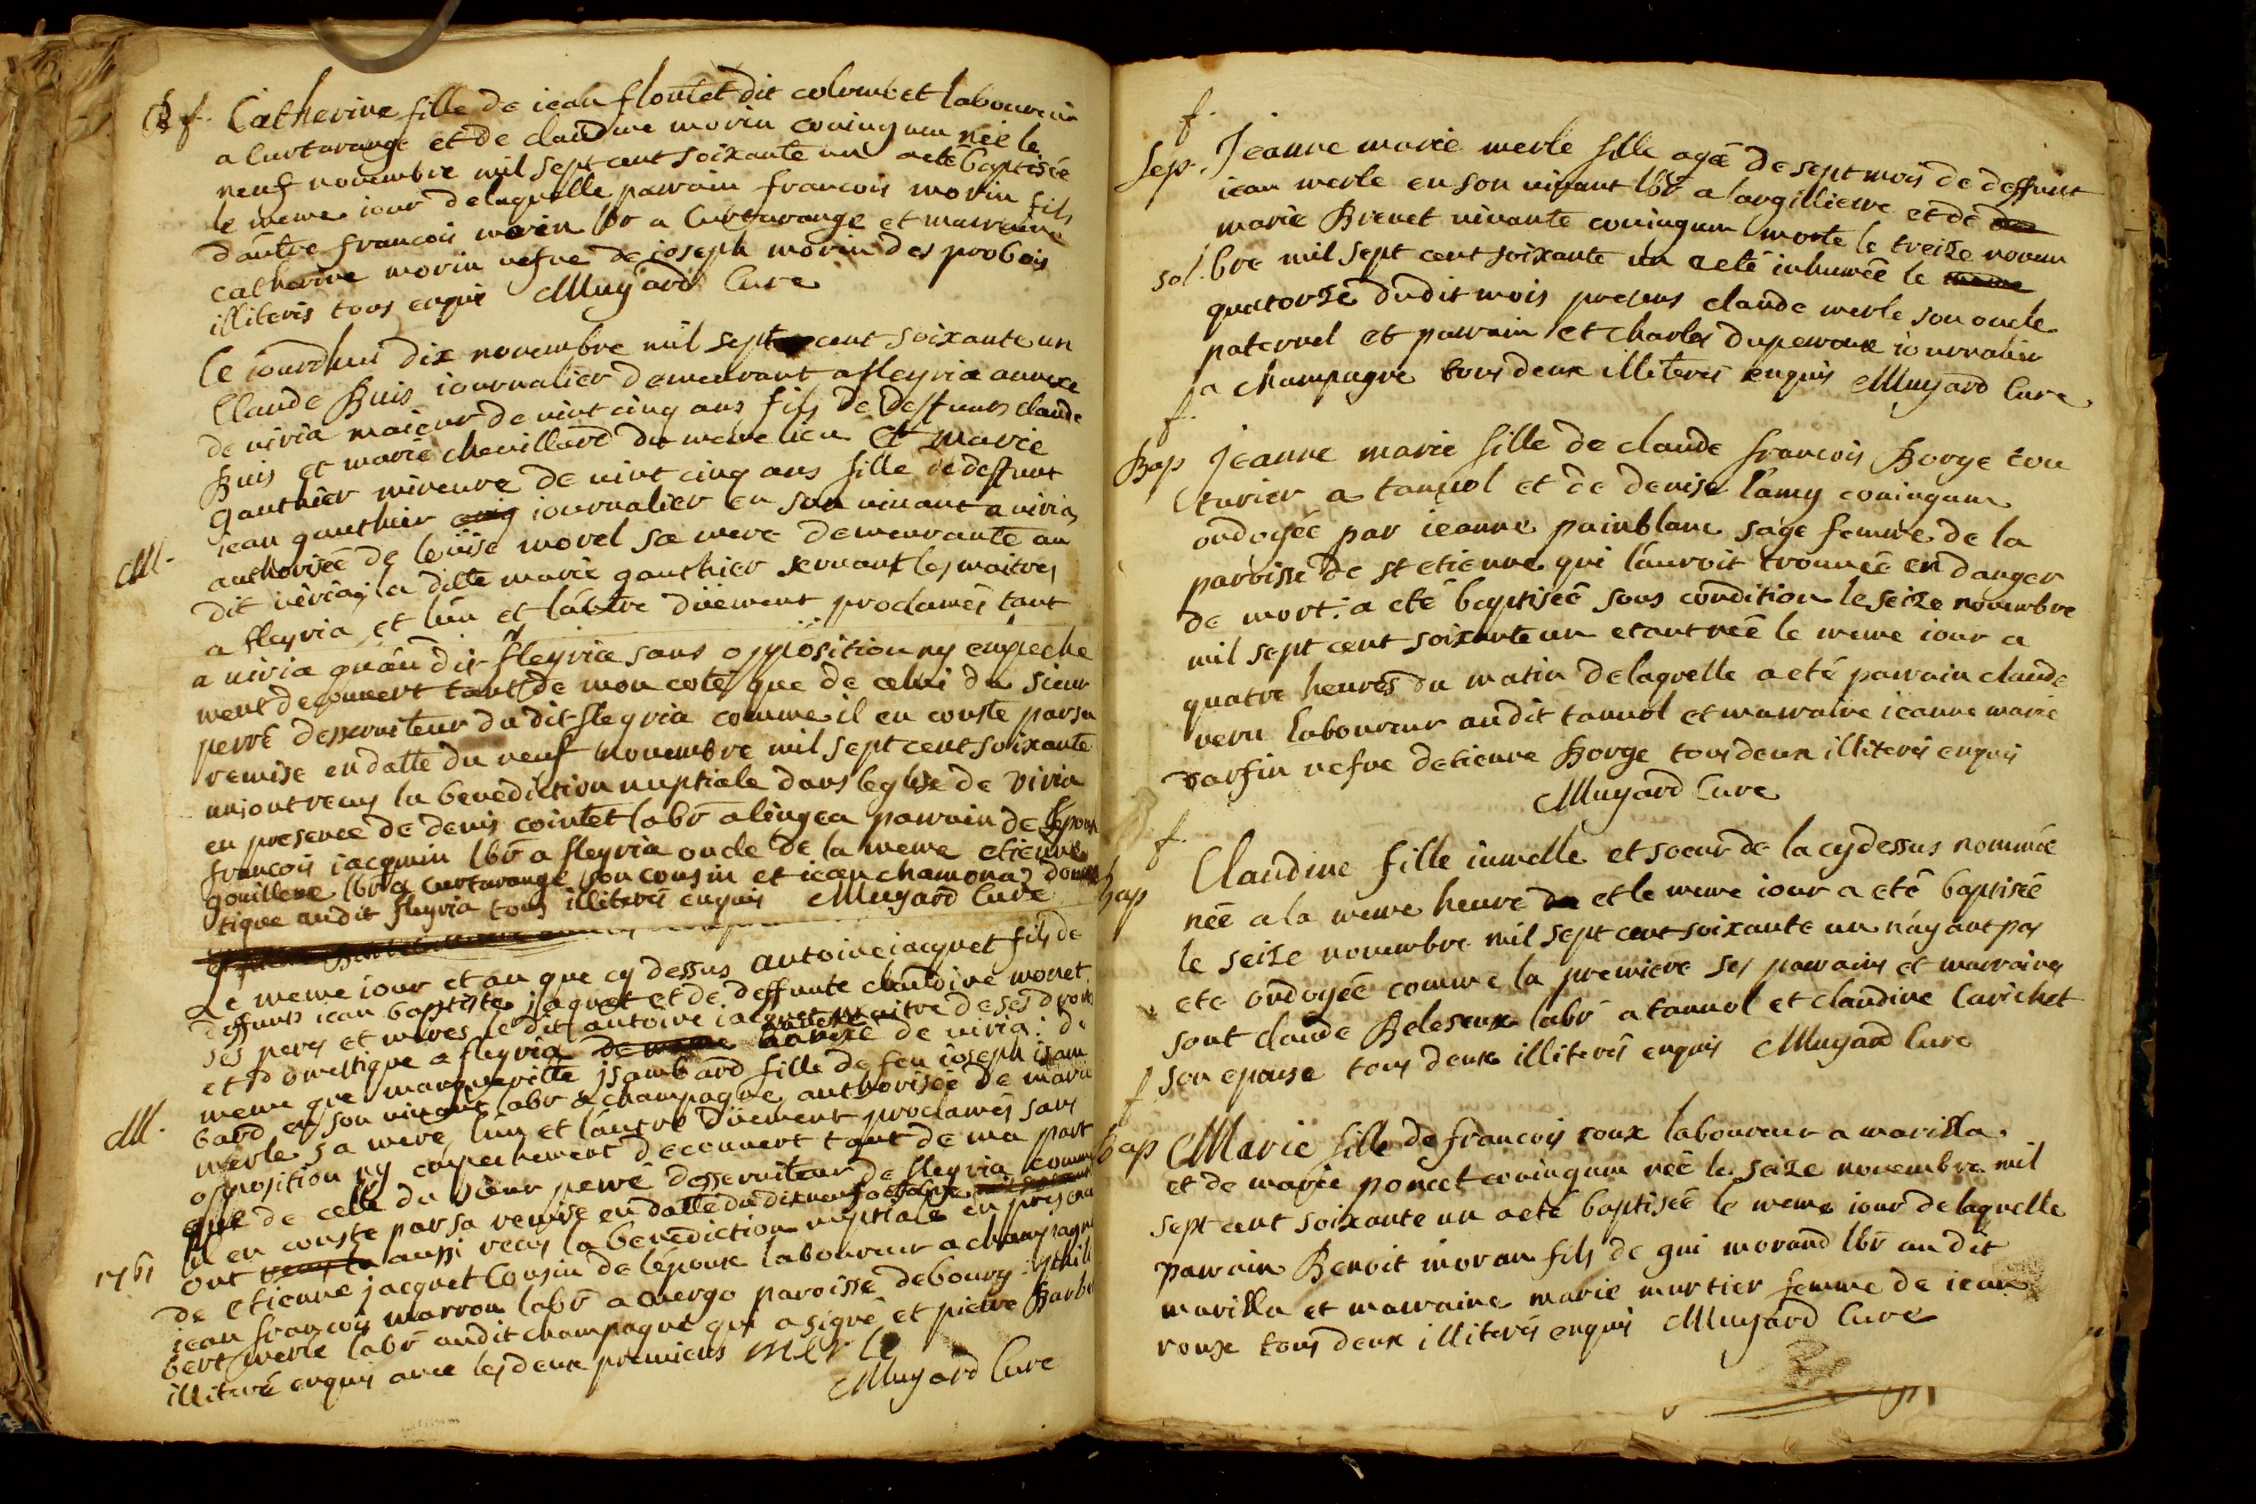 B f. Catherine fille de iean floutet dit colombet laboureur
a Curtarange et de claudine morin coniugum née le
neuf novembre mil sept cent soixante un a eté baptisée
le meme iour de laquelle parrain francois morin fils
d'autre francois morin lbr a Curtarange et marraine
catherine morin vefve de ioseph morin des probois
illiterés tous enquis Muyard Cure
Ce iourdhui dix novembre mil sept cent soixante un
Claude Buis iournalier demeurant a fleyria annexe
de viria maieur de vint cinq ans fils de deffunts claude
Buis et marie chevillard du meme lieu Et marie
Gauthier mineure de vint cinq ans fille de deffunt
iean gauthier iournalier en son vivant a viria
M. authorisée de lovise morel sa mere demeurante au
dit viria, la ditte marie gauthier servant les maitres
a fleyria et lun et lautre düement proclamés tant
a viria qu'au dit fleyria sans opposition ny empeche
ment decouvert tant de mon coté que de celui du sieur
perré desserviteur du dit fleyria comme il en conste par sa
remise en datte du neuf novembre mil sept cent soixante
un, ont recus la benediction nuptiale dans leglise de viria
en presence de denis cointet labr a lingea parrain de lepoux
francois iacquin lbr a fleyria oncle de la meme etienne
gouillene lbr a Curtarange son cousin et iean chamona domes
tique au dit fleyria tous illiterés enquis Muyard Cure
Le meme iour et an que cy dessus antoine iacquet fils de
deffunts iean baptiste jaquet et de deffunte claudine monet
ses pere et meres le dit antoine iacquet maitre de ses droits
et domestique a fleyria annexe de viria : de
meme que margueritte isambard fille de feu ioseph isam
bard en son vivant labr a champagne, authorisée de marie
M. merle sa mere, lun et lautre düement proclamés sans
opposition ny empechement decouvert tant de ma part
que de celle du sieur perré desserviteur de fleyria comme
il en conste par sa remise en datte du dit neuf
1761 ont aussi recus la benediction nuptiale en presence
de etienne jacquet Cousin de lépoux laboureur a champagne
iean francois marron labr a avergo paroisse de bourg : phili
bert merle labr au dit champagne qui a signé et pierre Barbe
illiteré enquis avec les deux premiers merle
Muyard Cure
f.
Sep. Jeanne marie merle fille agée de sept mois de deffunt
iean merle en son vivant lbr a largillierre et de
marie Brenet vivante coniugum morte le treize novem
sol. bre mil sept cent soixante un a eté inhumée le
quatorze du dit mois presens claude merle son oncle
paternel et parrain et charles duperoux iournalier
a champagne tous deux illiterés enquis Muyard Cure
f.
Bap Jeanne marie fille de claude francois Borge cou
turier a tannol et de denise lamy coniugum
ondoyée par ieanne painblanc sage femme de la
paroisse de st etienne qui l'auroit trouvée en danger
de mort : a eté baptisée sous condition le seize novembre
mil sept cent soixante un etant née le meme iour a
quatre heures du matin de laquelle a eté parrain claude
veru laboureur au dit tannol et marraine ieanne marie
darfin vefve detienne Borge tous deux illiterés enquis
Muyard Cure
f.
bap Claudine fille iumelle et soeur de la cy dessus nommée
née a la meme heure et le meme iour a eté baptisée
le seize novembre mil sept cent soixante un n'ayant pas
eté ondoyée comme la premiere ses parrains et marraines
sont claude Beleseux labr a tannol et claudine Carichet
son epouse tous deux illiterés enquis Muyard Cure
f
bap Marie fille de francois roux laboureur a marilla
et de marie poncet coniugum née le seize novembre mil
sept cent soixante un a eté baptisée le meme iour de laquelle
parrain Benoit moran fils de gui morand lbr au dit
marilla et marraine marie murtier femme de iean
roux tous deux illiterés enquis Muyard Cure